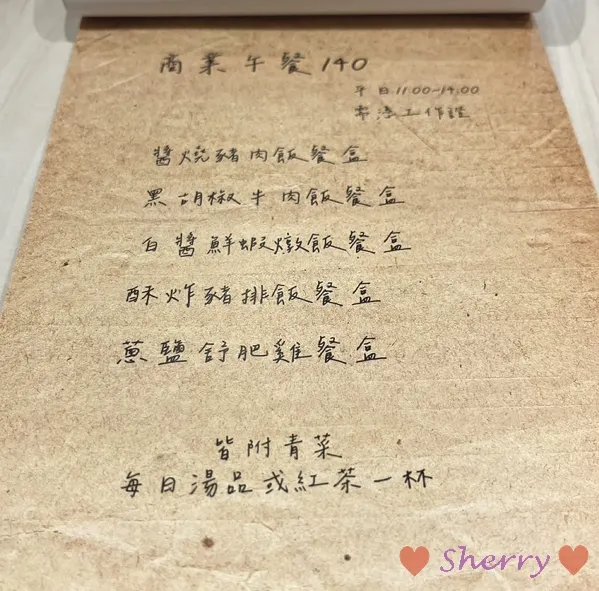 商業午餐140
平日11:00-14:00
需憑工作證
醬燒豬肉飯餐盒
黑胡椒牛肉飯餐盒
白醬鮮蝦燉飯餐盒
酥炸豬排飯餐盒
蔥鹽舒肥雞餐盒
皆附青菜
每日湯品或紅茶一杯
Sherry